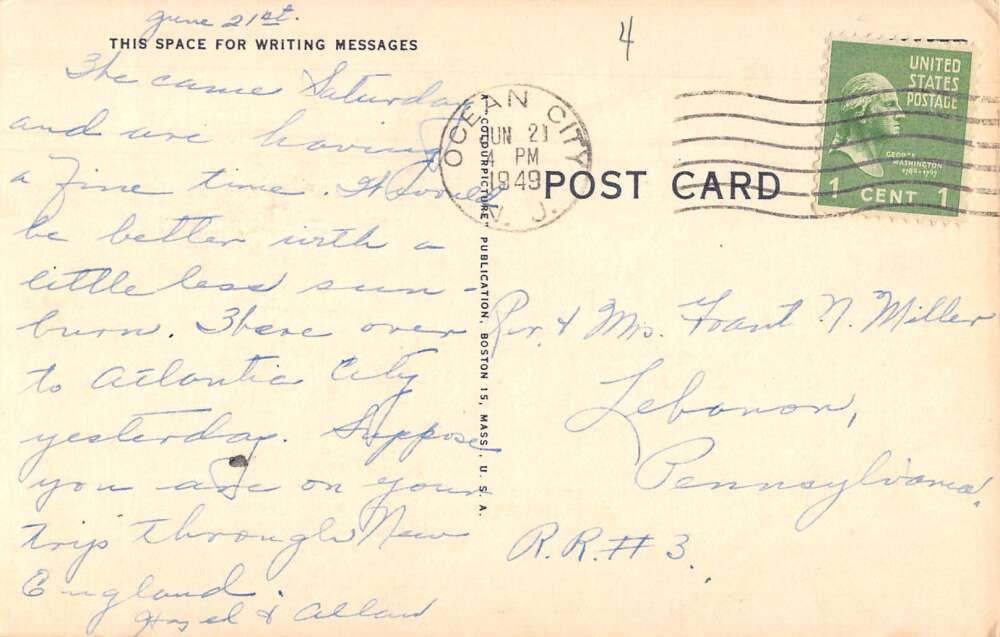 June 21st.
THIS SPACE FOR WRITING MESSAGES
4
We came Saturday
and are having
a fine time. Would
be better with a
little less sun-
burn. Were over
to Atlantic City
yesterday. Suppose
you are on your
trip through New
England.
Hazel & Allan
A COLOURPICTURE PUBLICATION, BOSTON 15, MASS., U.S.A.
OCEAN CITY
JUN 21
4 PM
1949
N. J.
POST CARD
UNITED
STATES
POSTAGE
GEORGE
WASHINGTON
1789-1797
1 CENT 1
Rev. & Mrs. N. Miller
Lebanon,
Pennsylvania.
R.R. # 3.